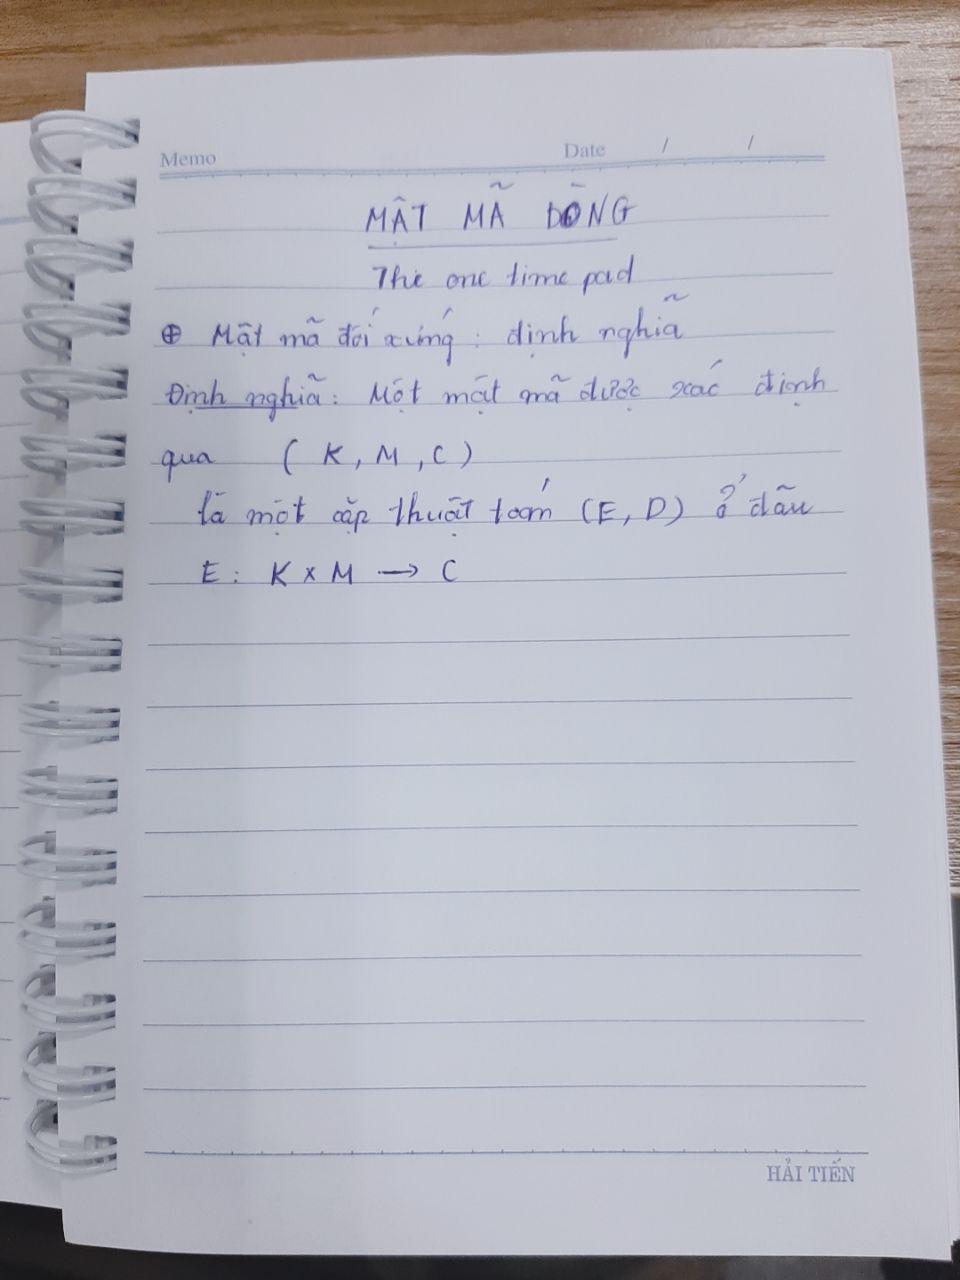 Memo
Date / /
MẬT MÃ DÒNG
The one time pad
⊕ Mật mã đối xứng : định nghĩa
Định nghĩa : Một mật mã được xác định
qua ( K, M, C )
là một cặp thuật toán (E, D) ở đâu
E : K × M → C
HẢI TIẾN